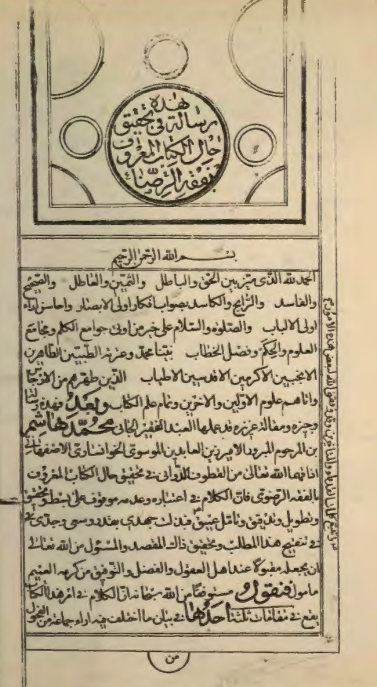 هذه
رسالة في تحقيق
حال الكتاب المعروف
بفقه الرضا
بسم الله الرحمن الرحيم
الحمد لله الذى ميّز بين الحق والباطل والثمين والعاطل والصحيح
والفاسد والرايج والكاسد بصواب افكار اولى الابصار واحاسن اراء
اولى الالباب والصلوة والسلام على خير من اوتى جوامع الكلم ومجامع
العلوم والحكم وفضل الخطاب نبيّنا محمّد وعترته الطيبين الطاهرين
الانجبين الاكرمين الاقدسين الاطياب الذين طهرهم من الارجاس
واتاهم علوم الاولين والاخرين وتمام علم الكتاب وبعد فهذه رسالة
وجيزة ومقالة عزيزة قد عملها العبد الفقير الجانى محمد هاشم
بن المرحوم المبرور الامير زين العابدين الموسوى الخوانسارى الاصفهانى
اذاقهما الله تعالى من القطوف الدوانى فى تحقيق حال الكتاب المعروف
بالفقه الرضوى فان الكلام فى اعتباره وعدمه موقوف على بسط وتحقيق
وتطويل وتدقيق وتامل عميق فبذلت جهدى بعد وسعى وجدى
فى تنقيح هذا المطلب وتحقيق ذلك المقصد والمسئول من الله تعالى
ان يجعله مقبولا عند اهل العقول والفضل والتوفيق من كرمه العميم
مامول فنقول مستوفقا من الله سبحانه ان الكلام فى امر هذا الكتاب
يقع فى مقامات ثلثة احدها فى بيان ما اختلف فيه اراء جماعة من الفحول
من